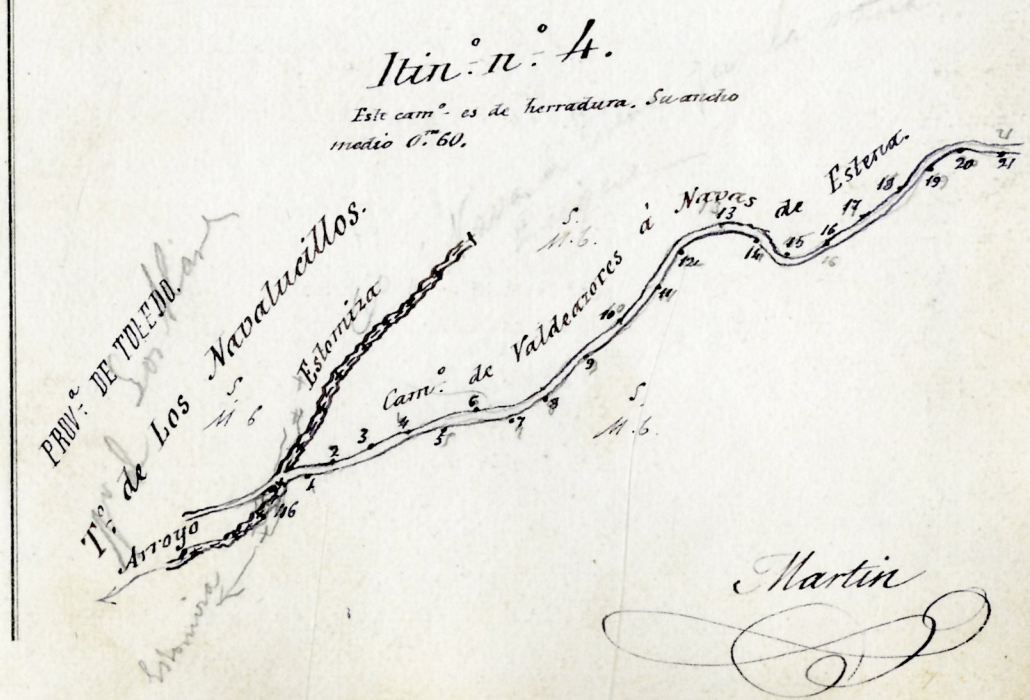 Itin.º n.º 4.
Este cam.º es de herradura. Su ancho
medio 0.ᵐ60.
PROV.ª DE TOLEDO.
T.º de Los Navalucillos.
S.
M. 6
Estomiza
Arroyo
Cam.º de Valdeazores á Navas de Estena.
S.
M. 6.
S.
M. 6.
46
1
2
3
4
5
6
7
8
9
10
11
12
13
14
15
16
16
17
18
19
20
21
Martin